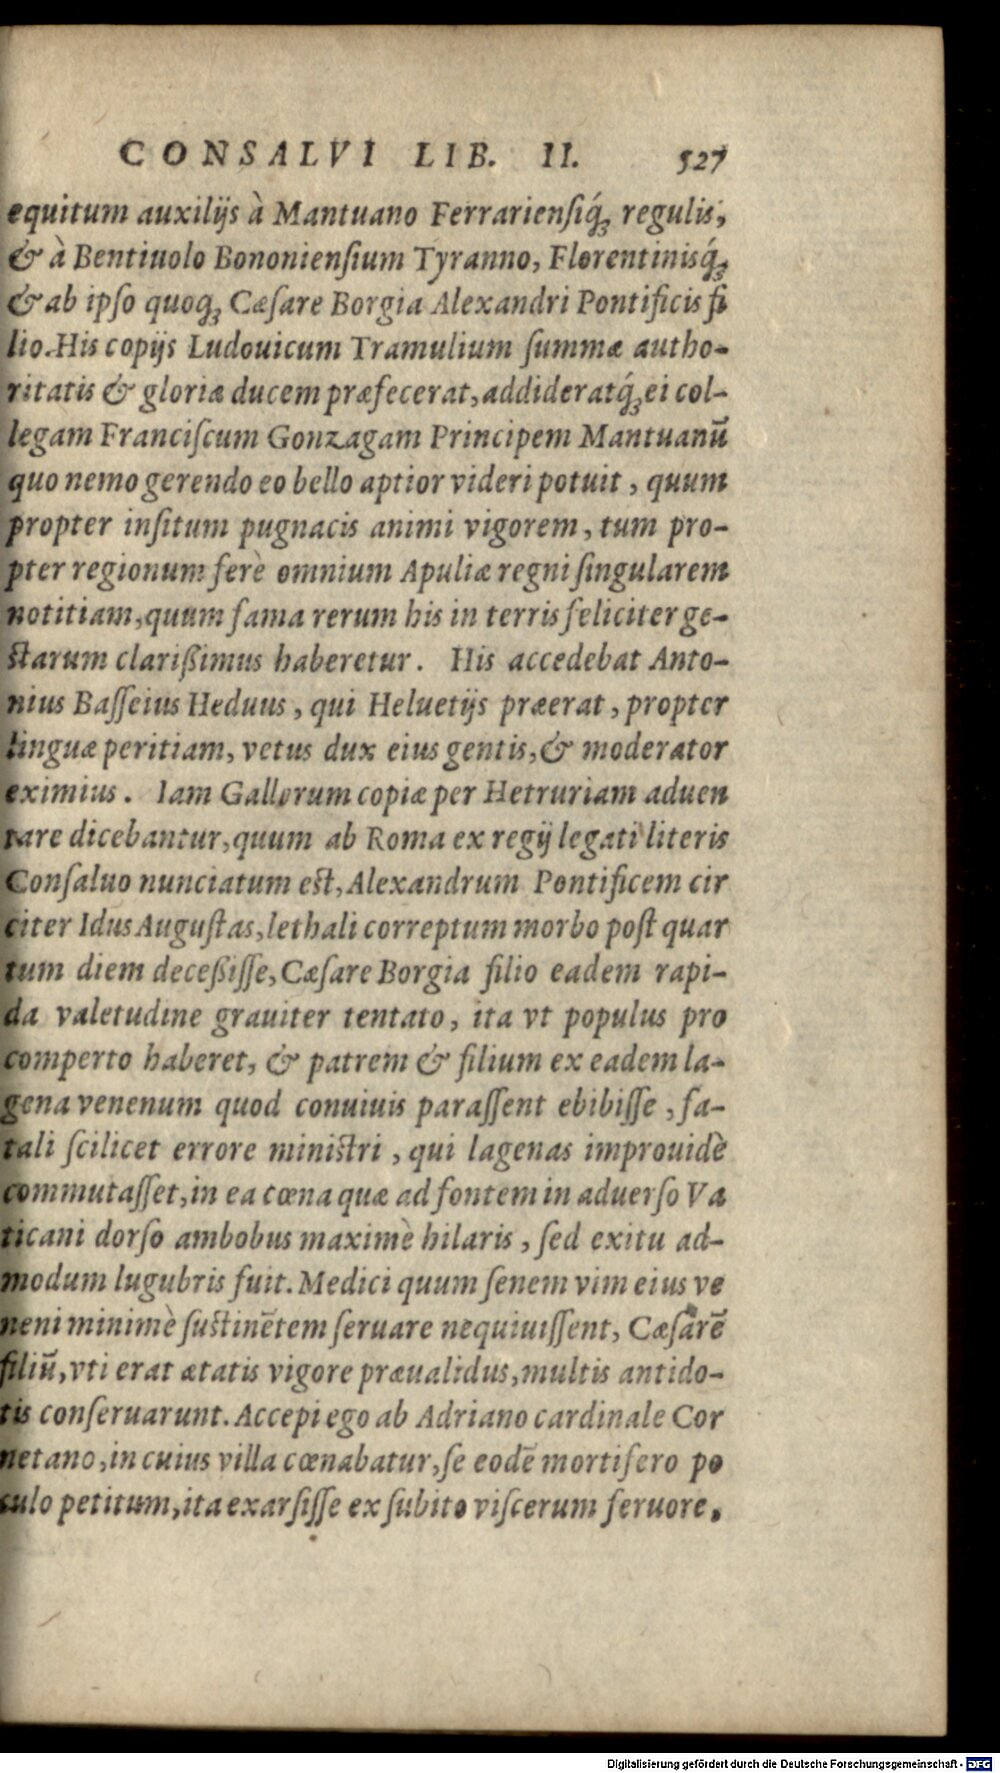 CONSALVI LIB. II. 527
equitum auxilijs à Mantuano Ferrariensiq́ꝫ regulis,
& à Bentiuolo Bononiensium Tyranno, Florentinisq́ꝫ
& ab ipso quoqꝫ Cæsare Borgia Alexandri Pontificis fi
lio. His copijs Ludouicum Tramulium summæ autho-
ritatis & gloriæ ducem præfecerat, addideratq́ꝫ ei col-
legam Franciscum Gonzagam Principem Mantuanũ
quo nemo gerendo eo bello aptior videri potuit, quum
propter insitum pugnacis animi vigorem, tum pro-
pter regionum ferè omnium Apuliæ regni singularem
notitiam, quum fama rerum his in terris feliciter ge-
starum clarißimus haberetur. His accedebat Anto-
nius Basseius Heduus, qui Heluetijs præerat, propter
linguæ peritiam, vetus dux eius gentis, & moderator
eximius. Iam Gallorum copiæ per Hetruriam aduen
tare dicebantur, quum ab Roma ex regij legati literis
Consaluo nunciatum est, Alexandrum Pontificem cir
citer Idus Augustas, lethali correptum morbo post quar
tum diem deceßisse, Cæsare Borgia filio eadem rapi-
da valetudine grauiter tentato, ita vt populus pro
comperto haberet, & patrem & filium ex eadem la-
gena venenum quod conuiuis parassent ebibisse, fa-
tali scilicet errore ministri, qui lagenas improuidè
commutasset, in ea cœna quæ ad fontem in aduerso Va
ticani dorso ambobus maximè hilaris, sed exitu ad-
modum lugubris fuit. Medici quum senem vim eius ve
neni minimè sustinẽtem seruare nequiuissent, Cæsarẽ
filiũ, vti erat ætatis vigore præualidus, multis antido-
tis conseruarunt. Accepi ego ab Adriano cardinale Cor
netano, in cuius villa cœnabatur, se eodẽ mortifero po
culo petitum, ita exarsisse ex subito viscerum feruore,
Digitalisierung gefördert durch die Deutsche Forschungsgemeinschaft - DFG